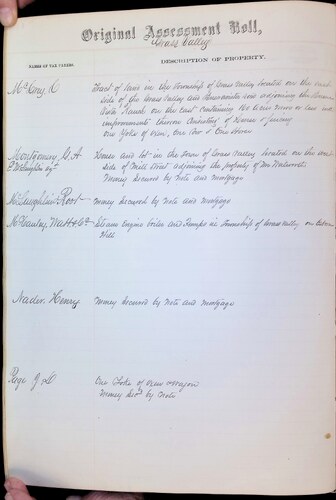 Original Assessment Roll,
Grass Valley
NAMES OF TAX PAYERS.
DESCRIPTION OF PROPERTY.
Tract of land in the Township of Grass Valley located on the
side of the Grass Valley and road adjoining the
Ranch on the East containing acres more or less and
improvements thereon Consisting of House & fencing
One Yoke of Oxen, One Cow & One Horse
Montgomery G. A.
House and lot in the Town of Grass Valley located on the
side of Mill Street adjoining the property of
Money secured by Note and Mortgage
McLaughlin Robt
Money secured by Note and Mortgage
Watt & Co.
Steam engine boiler and Stamps in Township of Grass Valley on
Hill
Nader. Henry
Money secured by Note and Mortgage
Page
One Yoke of Oxen & Wagon
Money by Note